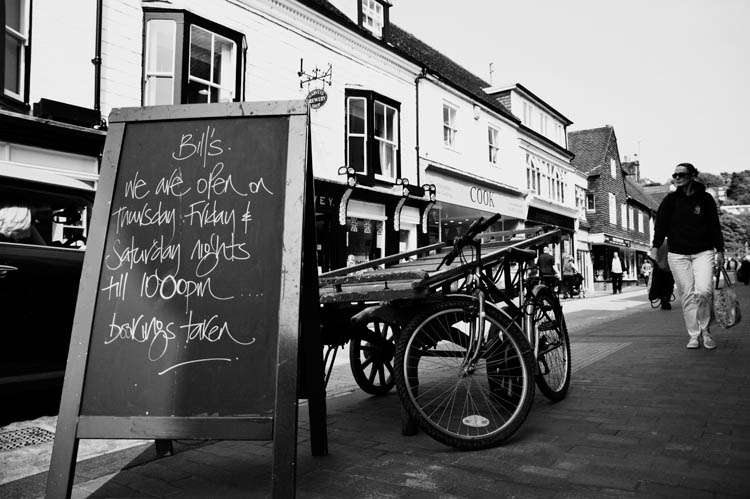 Bill's.
we are open on
Thursday. Friday &
Saturday nights
till 10:00pm ....
bookings taken
COOK